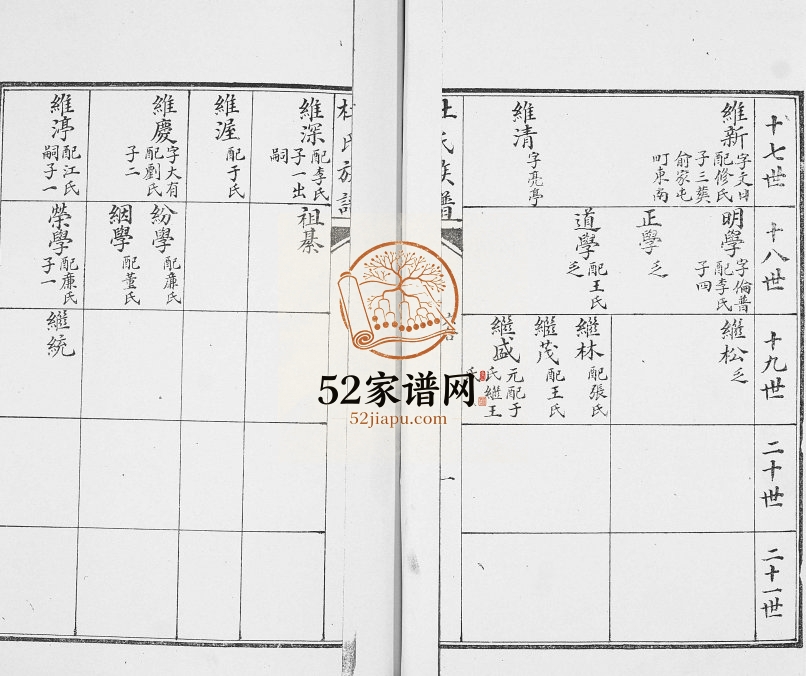 十七世
維新 字文日 配修氏 子三葬 俞家屯 町東南
維清 字亮亭
十八世
明學 字倫普 配李氏 子四
正學 乏
道學 配王氏 乏
十九世
繼松 乏
繼林 配張氏
繼茂 配王氏
繼盛 元配于氏繼王氏
二十世
二十一世
杜氏族譜
一
杜氏族譜
維深 配李氏 子一出嗣
維渥 配于氏
維慶 字大有 配劉氏 子二
維渟 配江氏 嗣子一
祖綦
紛學 配亷氏
絪學 配董氏
榮學 配亷氏 子一
繼統
52家谱网
52jiapu.com